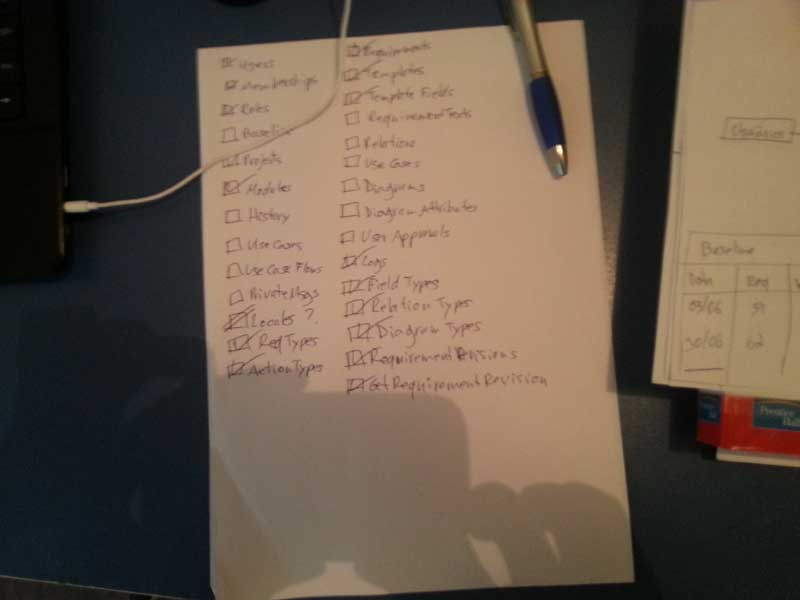 Users
Memberships
Roles
Baseline
Projects
Modules
History
Use Cases
Use Case Flows
Private Msgs
Locales ?
Req Types
Action Types
Requirements
Templates
Template Fields
Requirement Texts
Relations
Use Cases
Diagrams
Diagram Attributes
User Approvals
Logs
Field Types
Relation Types
Diagram Types
Requirement Revisions
Get Requirement Revision
Usuários
Baseline
Data Req
03/06 59
30/06 62
Prentice
Hall